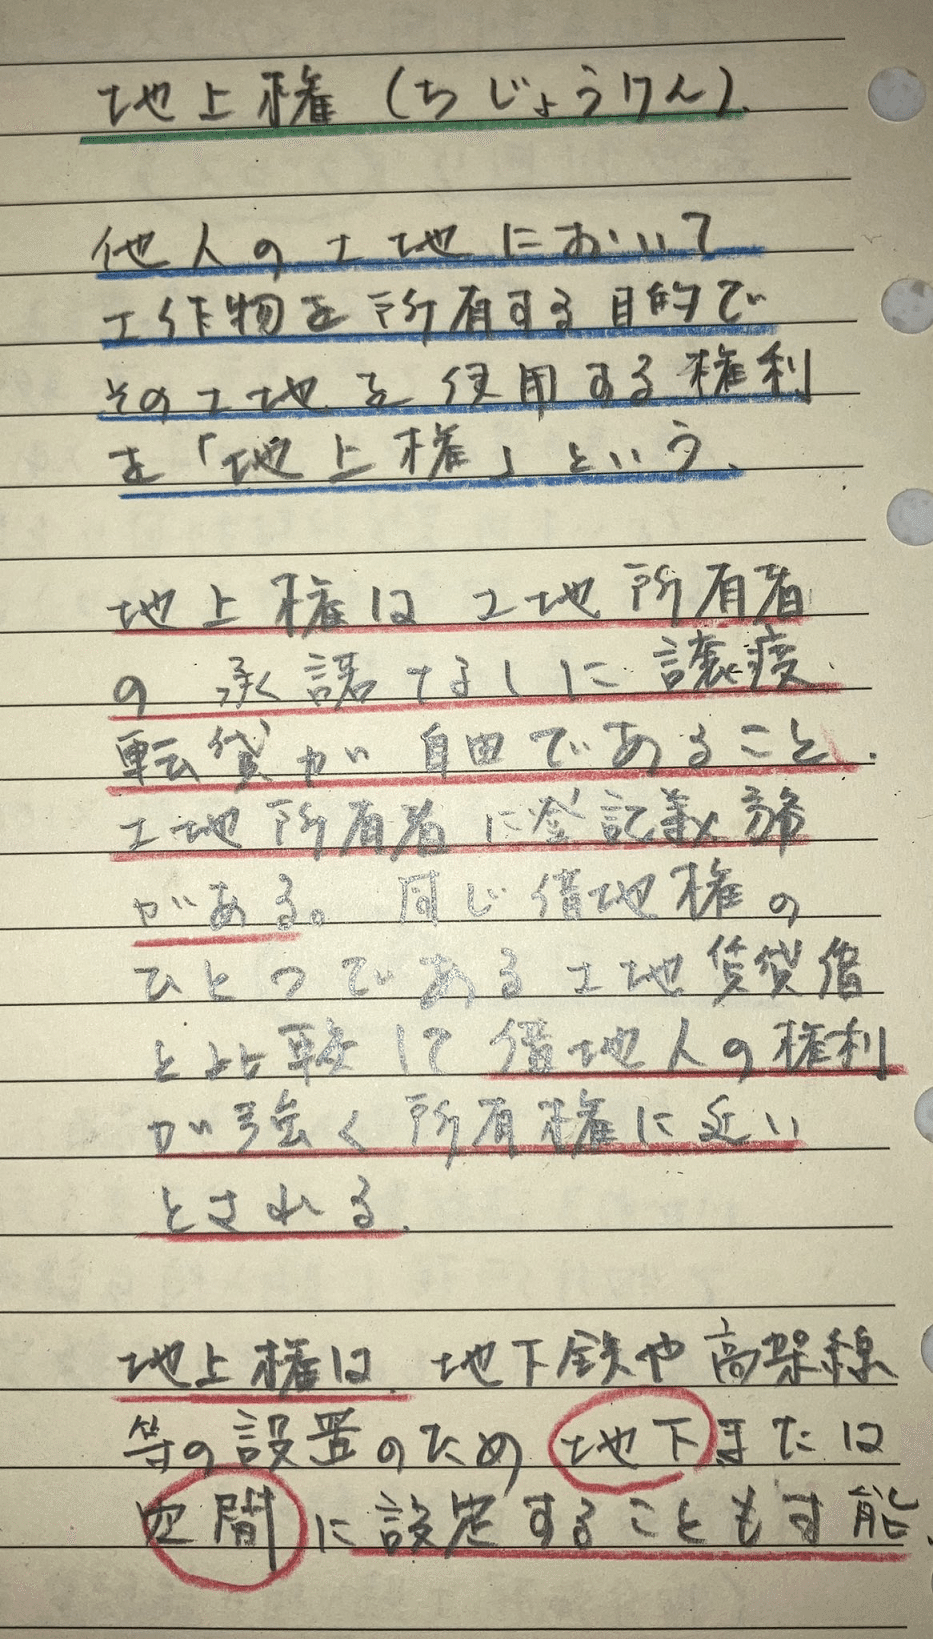 地上権（ちじょうけん）、
他人の土地において
工作物を所有する目的で
その土地を使用する権利
を「地上権」という、
地上権は土地所有者
の承諾なしに譲渡、
転貸が自由であること、
土地所有者に登記義務
がある。同じ借地権の
ひとつである土地賃貸借
と比較して借地人の権利
が強く所有権に近い
とされる、
地上権は、地下鉄や高架線
等の設置のため地下または
空間に設定することも可能、